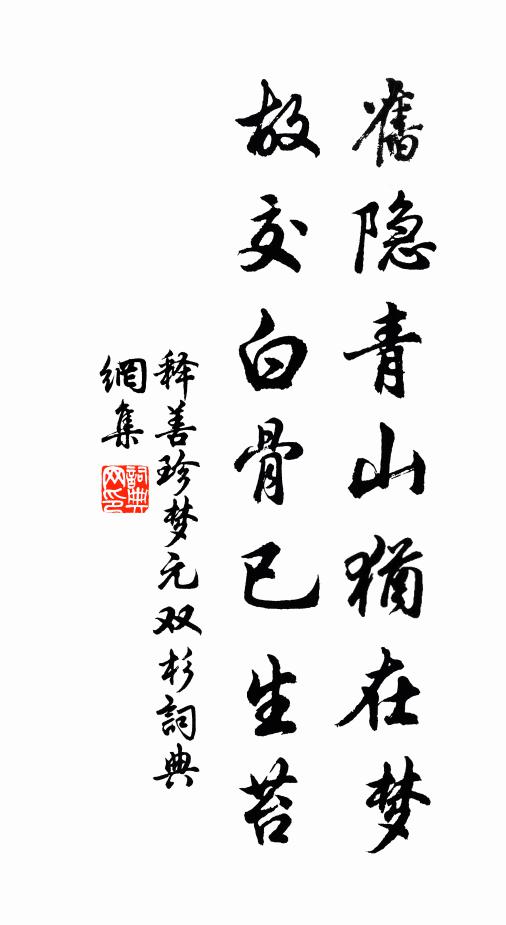 舊隐青山猶在梦
故交白骨已生苔
释善珍梦元双杉詞典
網集
詞典网印